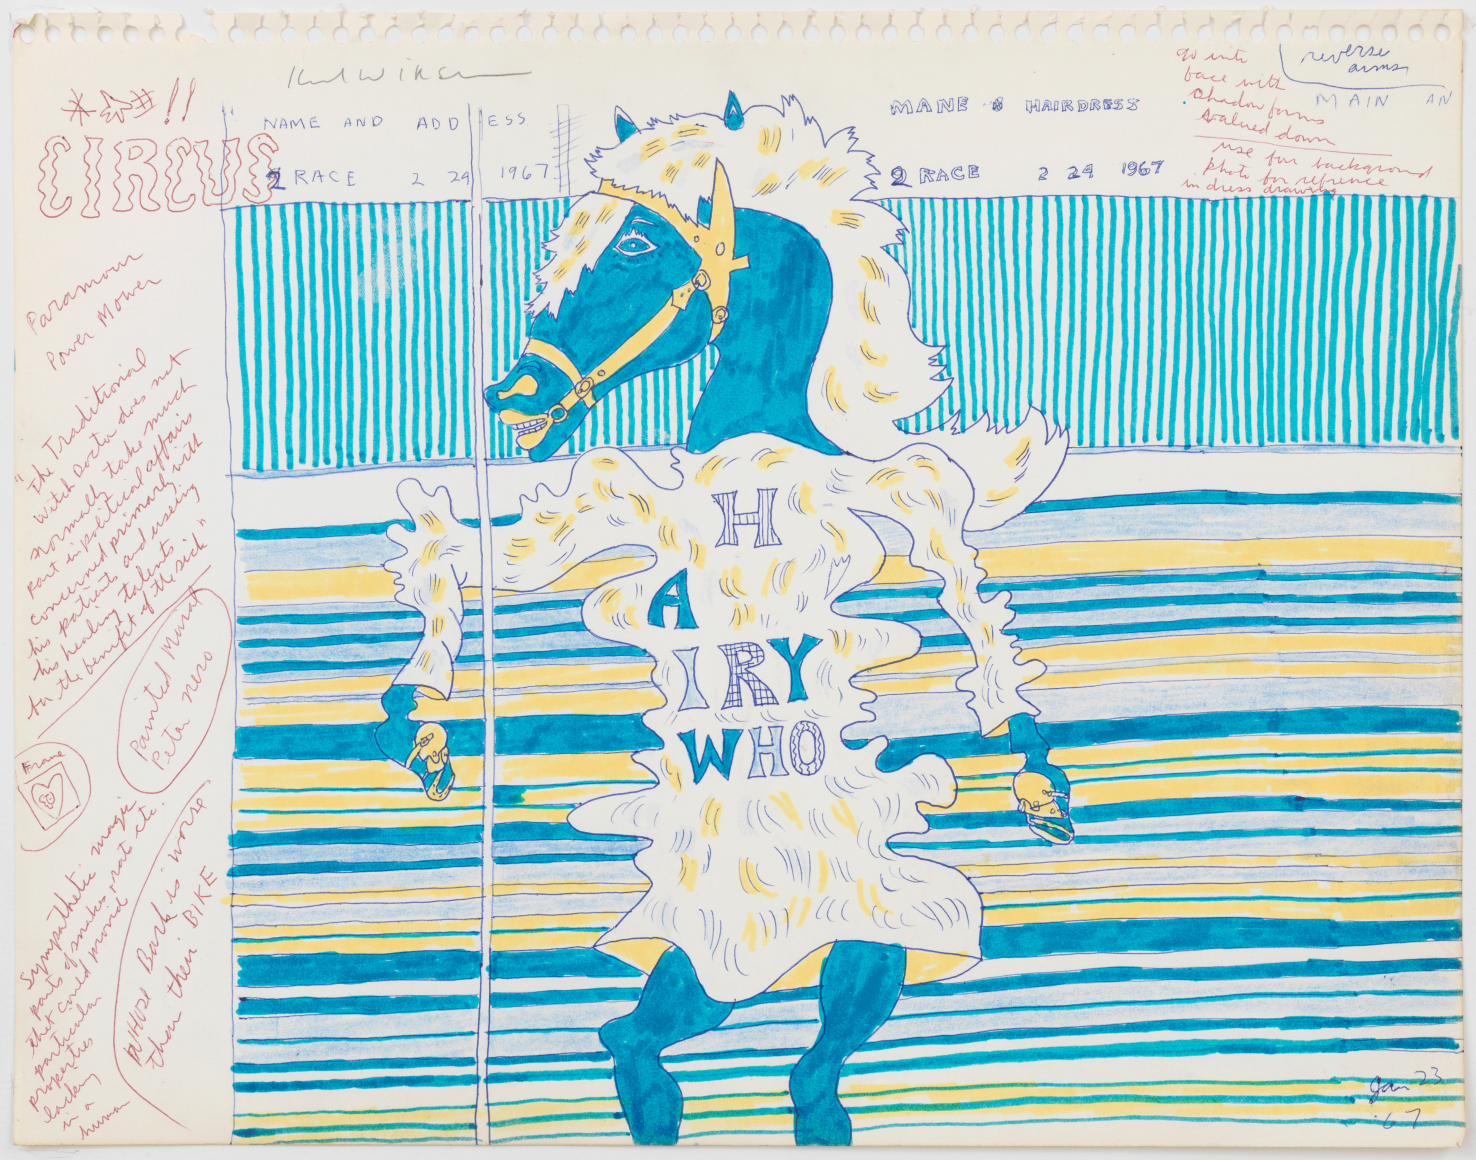 Karl Wirsum
*☆#!!
CIRCUS
NAME AND ADD ESS
2 RACE 2 24 1967
MANE & HAIRDRESS
2 RACE 2 24 1967
go into
face with
shadow forms
valued down
use for background
photo for refrence
in dress drawing
reverse
arms
MAIN AN
Paramour
Power Mower
"The Traditional
Witch Doctor does not
normally take much
part in political affairs
concerned primarly with
his patients and useing
his healing talents
for the benefit of the sick"
Painted Mount
Peter nero
Frame
Sympathetic magic
parts of snakes rat etc.
that could mond
particular
properties
lacking
in a
human
WHOSE Bark is worse
than their BIKE
H
A
IRY
WHO
Jan 23
67